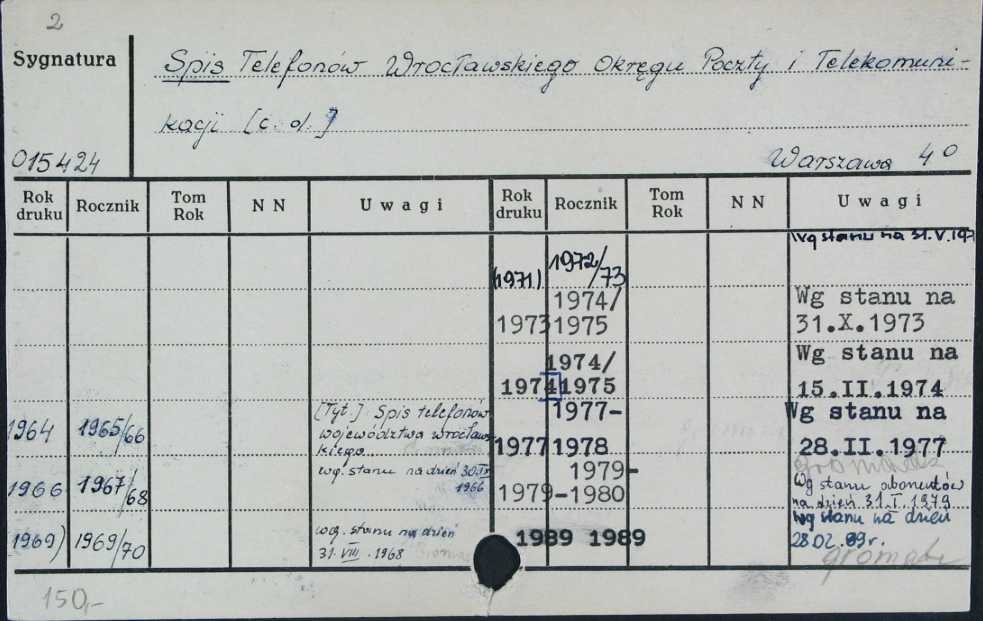 2
Sygnatura
Spis Telefonów Wrocławskiego Okręgu Poczty i Telekomuni-
kacji [c.d.]
015424
Warszawa 40
Rok druku Rocznik Tom Rok NN Uwagi Rok druku Rocznik Tom Rok NN Uwagi
Wg stanu na 31.V.197
(1971) 1972/73
1974/ Wg stanu na
1973 1975 31.X.1973
1974/ Wg stanu na
1974 1975 15.II.1974
1964 1965/66 [Tyt.] Spis telefonów
województwa wrocławs
kiego
1977- Wg stanu na
1977 1978 28.II.1977
1966 1967/68 wg. stanu na dzień 30.IX
1966
1979- Wg stanu abonentów
1979-1980 na dzień 31.I.1979
1969) 1969/70 wg. stanu na dzień
31.VIII.1968
1989 1989 Wg stanu na dzień
28.02.89r.
150,-